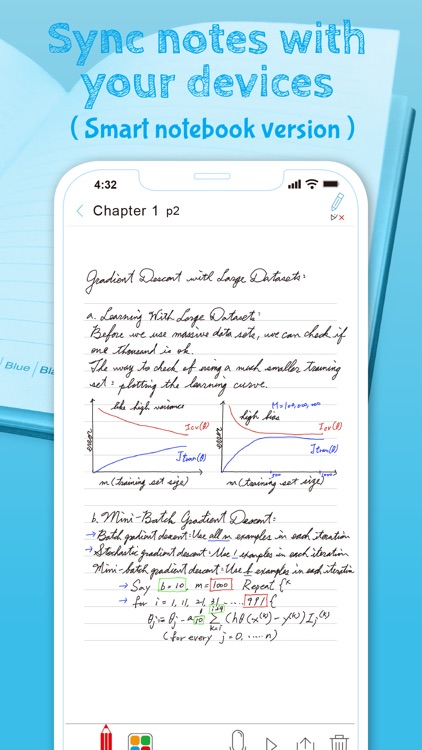 Sync notes with
your devices
( Smart notebook version )
4:32
Chapter 1 p2
Gradient Descent with Large Datasets:
a. Learning With Large Datasets:
Before we use massive data sets, we can check if
one thousand is ok.
The way to check of using a much smaller training
set: plotting the learning curve.
like high variance
Jcv(θ)
Jtrain(θ)
m(training set size)
M=100,000,000
high bias
Jcv(θ)
Jtrain(θ)
m(training set size)
Blue | Bla
b. Mini-Batch Gradient Descent:
→ Batch gradient descent: Use all m examples in each iteration
→ Stochastic gradient descent: Use 1 examples in each iteration
Mini-batch gradient descent: Use b examples in each iteration
→ Say b=10, m=1000 Repeat {
→ for i = 1, 11, 21, 31, .....991 {
(for every j=0, .....n)